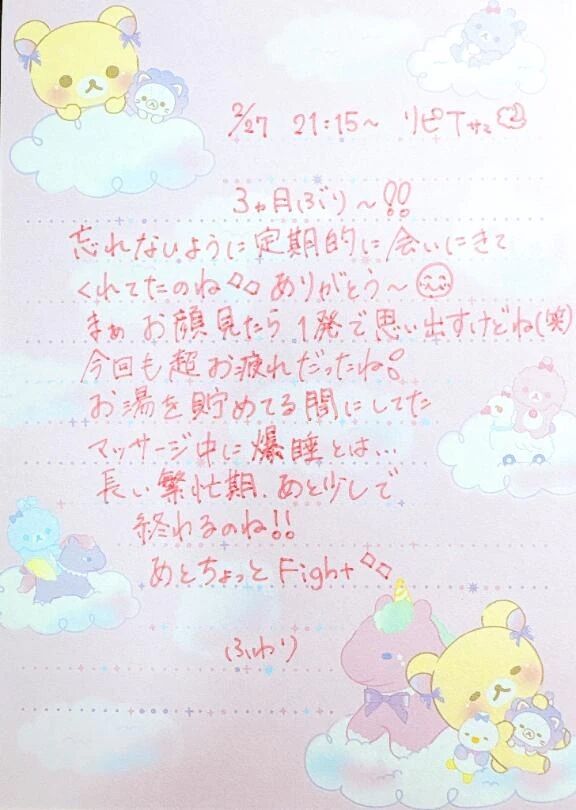 2/27 21:15～ リピTサマ
3ヵ月ぶり～!!
忘れないように定期的に会いにきて
くれてたのね ありがとう～
まぁ お顔見たら 1発で思い出すけどね(笑)
今回も超お疲れだったね!
お湯を貯めてる間にしてた
マッサージ中に爆睡とは…
長い繁忙期、あと少しで
終わるのね!!
あとちょっと Fight
ふわり